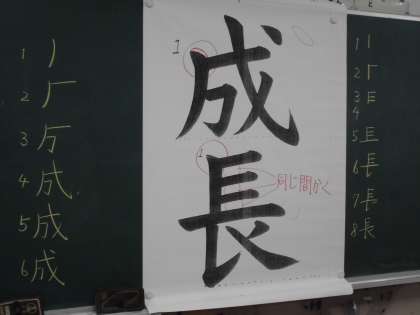 1 丿
2 厂
3 厉
4 成
5 成
6 成
1
成
1
長
同じ間かく
1 丨
2 「
3 F
4
5 镸
6 長
7 長
8 長